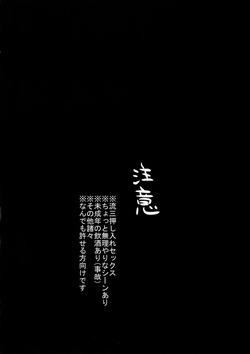 注意
※流三押し入れセックス
※ちょっと無理やりなシーンあり
※未成年の飲酒あり(事故)
※その他諸々
※なんでも許せる方向けです